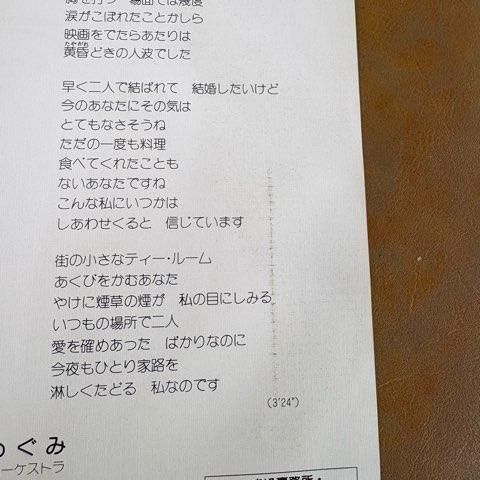 胸を打つ 場面では幾度
涙がこぼれたことかしら
映画をでたらあたりは
黄昏どきの人波でした
早く二人で結ばれて 結婚したいけど
今のあなたにその気は
とてもなさそうね
ただの一度も料理
食べてくれたことも
ないあなたですね
こんな私にいつかは
しあわせくると 信じています
街の小さなティー・ルーム
あくびをかむあなた
やけに煙草の煙が 私の目にしみる
いつもの場所で二人
愛を確めあった ばかりなのに
今夜もひとり家路を
淋しくたどる 私なのです
(3'24")
ぐみ
ーケストラ